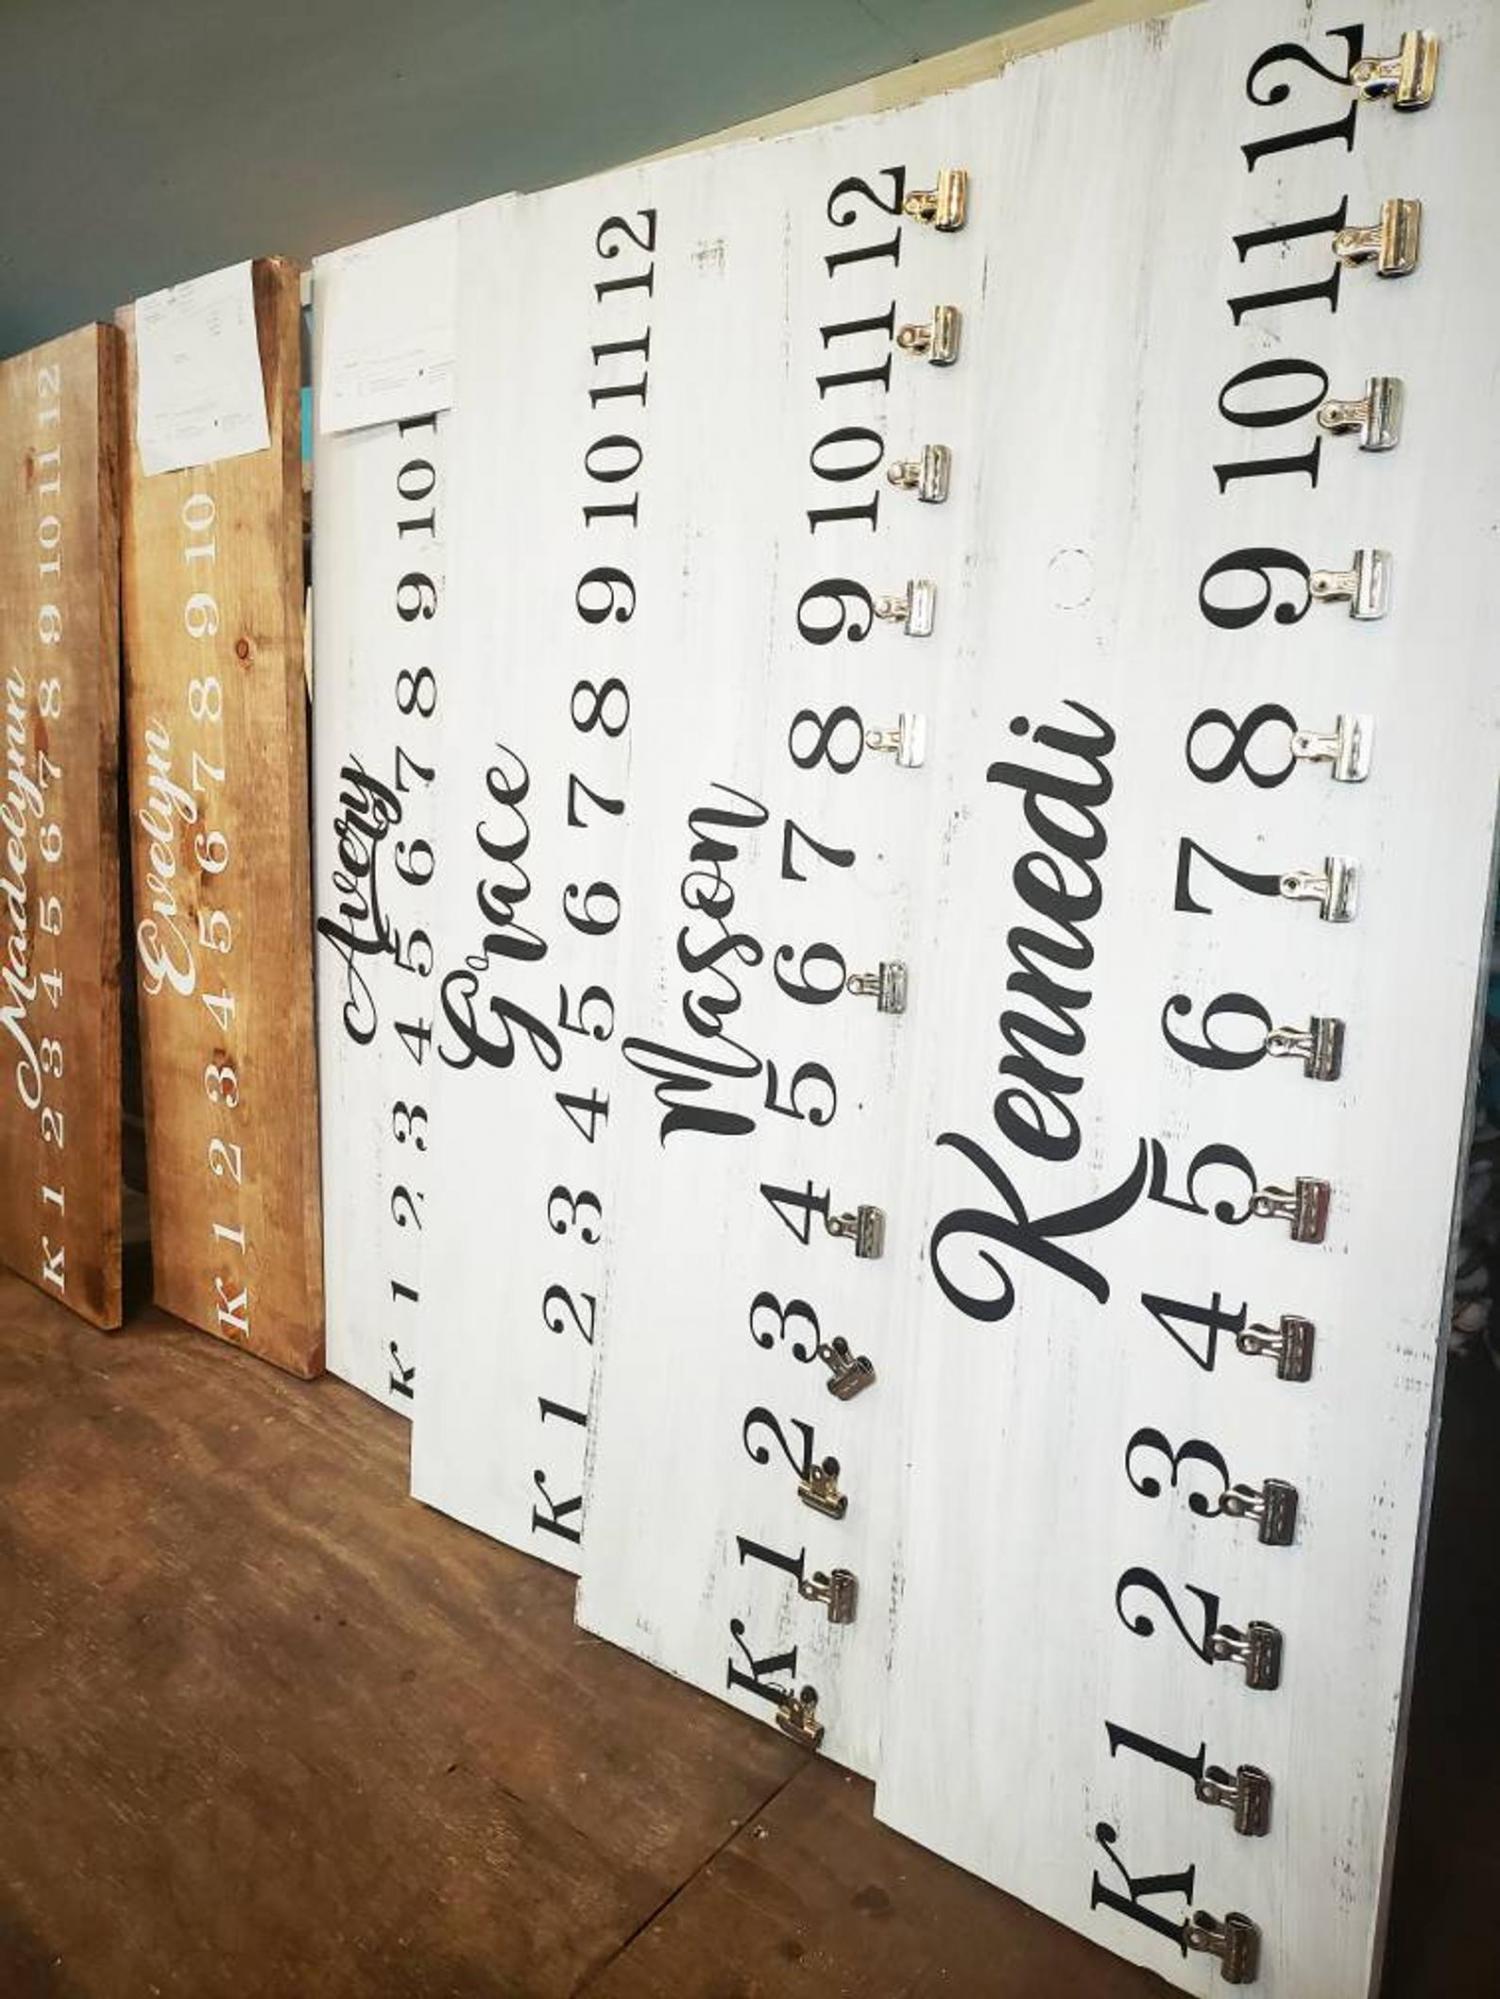 Madelynn
K 1 2 3 4 5 6 7 8 9 10 11 12
Evelyn
K 1 2 3 4 5 6 7 8 9 10
Avery
K 1 2 3 4 5 6 7 8 9 10 1
Grace
K 1 2 3 4 5 6 7 8 9 10 11 12
Mason
K 1 2 3 4 5 6 7 8 9 10 11 12
Kennedi
K 1 2 3 4 5 6 7 8 9 10 11 12